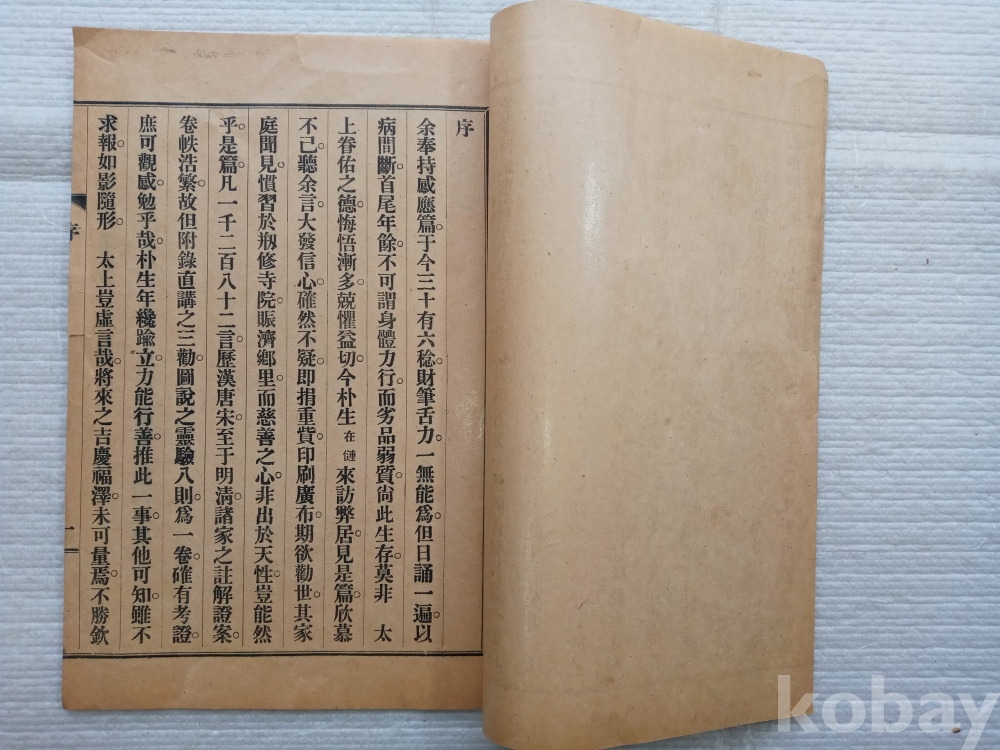 序
余奉持感應篇。于今三十有六稔。財筆舌力。一無能爲。但日誦一遍。以
病間斷。首尾年餘。不可謂身體力行。而劣品弱質。尙此生存。莫非　太
上眷佑之德。悔悟漸多。兢懼益切。今朴生在𢜸來訪弊居。見是篇。欣慕
不已。聽余言。大發信心。確然不疑。即捐重貲。印刷廣布。期欲勸世。其家
庭聞見。慣習於刱修寺院。賑濟鄉里。而慈善之心。非出於天性。豈能然
乎。是篇凡一千二百八十二言。歷漢唐宋。至于明淸。諸家之註解證案。
卷帙浩繁。故但附錄直講之三勸。圖說之靈驗八則。爲一卷。確有考證。
庶可觀感。勉乎哉。朴生年纔踰立。力能行善。推此一事。其他可知。雖不
求報。如影隨形。　太上豈虛言哉。將來之吉慶福澤。未可量焉。不勝欽
序
一
kobay